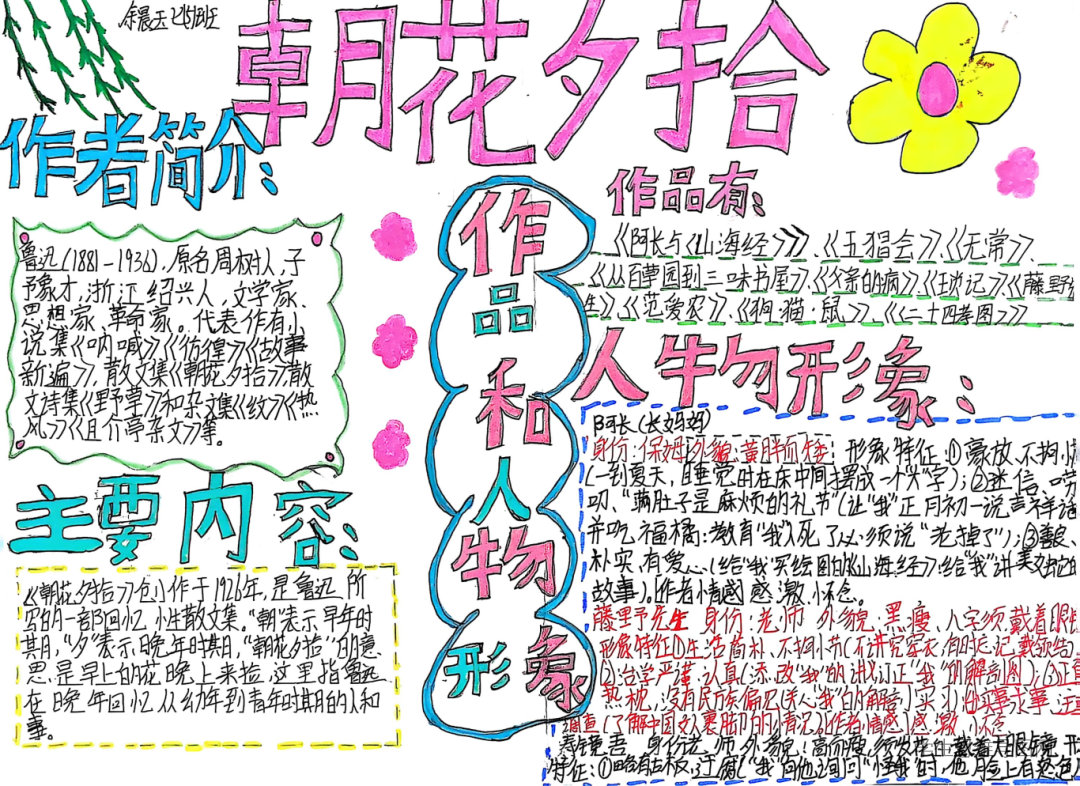 朝花夕拾
作者简介:
鲁迅(1881-1936),原名周树人,字
予豫才,浙江绍兴人,文学家、
思想家、革命家。代表作有小
说集《呐喊》《彷徨》《故事
新遍》,散文集《朝花夕拾》散
文诗集《野草》和杂文集《坟》《热
风》《且介亭杂文》等。
主要内容:
《朝花夕拾》创作于1926年,是鲁迅所
写的一部回忆性散文集。"朝"表示早年时
期,"夕"表示晚年时期,"朝花夕拾"的意
思是早上的花晚上来捡,这里指鲁迅
在晚年回忆从幼年到青年时期的人和
事。
作品和人物形象
作品有:
《阿长与《山海经》》、《五猖会》《无常》、
《从百草园到三味书屋》、《父亲的病》、《琐记》、《藤野
生》、《范爱农》、《狗·猫·鼠》、《二十四孝图》
人物形象:
阿长(长妈妈)
身份:保姆 外貌:黄胖而矮 形象特征:①豪放、不拘
(一到夏天,睡觉时在床中间摆成一个"大"字);②迷信、唠
叨、"满肚子是麻烦的礼节"(让"我"正月初一说吉祥话
并吃福橘;教育"我"人死了必须说"老掉了");③善良、
朴实、有爱心(给"我"买绘图的《山海经》,给"我"讲美女蛇的
故事)。作者情感:感激、怀念。
藤野先生 身份:老师 外貌:黑瘦、八字须、戴着眼
形象特征①生活简朴、不拘小节(不讲究穿衣,有时忘记戴领结
②治学严谨、认真(添改"我"的讲义,订正"我"的解剖图);③正直
热忱,没有民族偏见(关心"我"的解剖实习)④求实
调查(了解中国女人裹脚的情况)作者情感:感激、怀念
寿镜吾 身份:老师 外貌:高而瘦,须发花白,戴着大眼镜 形
特征:①略有古板、迂腐("我"向他询问"怪哉"时,他脸上有怒色